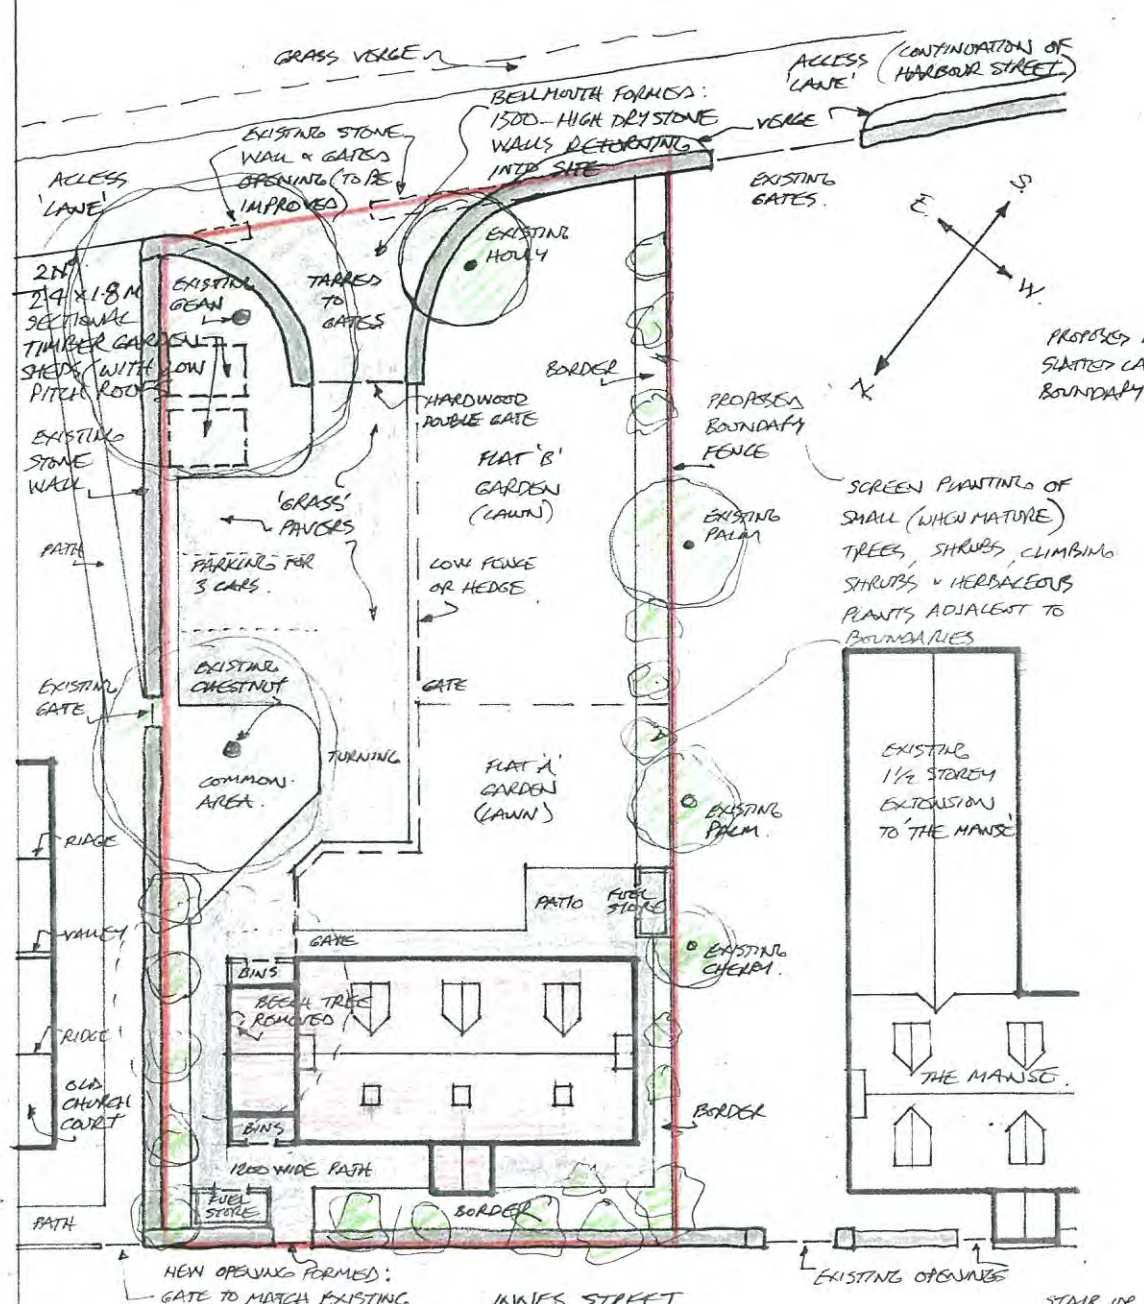 GRASS VERGE
ACCESS
'LANE'
(CONTINUATION OF
HARBOUR STREET)
BELLMOUTH FORMED:
1500-HIGH DRYSTONE
WALLS RETURNING
INTO SITE
VERGE
EXISTING STONE
WALL & GATED
OPENING (TO BE
IMPROVED)
ACCESS
'LANE'
EXISTING
GATES.
S.
E.
W.
N
EXISTING
HOLLY
2No
2.4 x 1.8 M
SECTIONAL
TIMBER GARDEN
SHEDS (WITH LOW
PITCH ROOFS
EXISTING
GEAN
TARRED
TO
GATES
PROPOSED
SLATTED
BOUNDARY
BORDER
HARDWOOD
DOUBLE GATE
PROPOSED
BOUNDARY
FENCE
EXISTING
STONE
WALL
FLAT 'B'
GARDEN
(LAWN)
'GRASS'
PAVERS
SCREEN PLANTING OF
SMALL (WHEN MATURE)
TREES, SHRUBS, CLIMBING
SHRUBS & HERBACEOUS
PLANTS ADJACENT TO
BOUNDARIES
EXISTING
PALM
PATH
PARKING FOR
3 CARS.
LOW FENCE
OR HEDGE.
EXISTING
CHESTNUT
EXISTING
GATE
GATE
TURNING
COMMON
AREA.
FLAT 'A'
GARDEN
(LAWN)
EXISTING
1 1/2 STOREY
EXTENSION
TO 'THE MANSE'
EXISTING
PALM.
RIDGE
PATIO
FUEL
STORE
VALLEY
GATE
EXISTING
CHERRY.
BINS
BEECH TREE
REMOVED
RIDGE
OLD
CHURCH
COURT
THE MANSE.
BINS
BORDER
1200 WIDE PATH
FUEL
STORE
BORDER
PATH
NEW OPENING FORMED:
GATE TO MATCH EXISTING
INNES STREET
EXISTING OPENINGS
STAIR